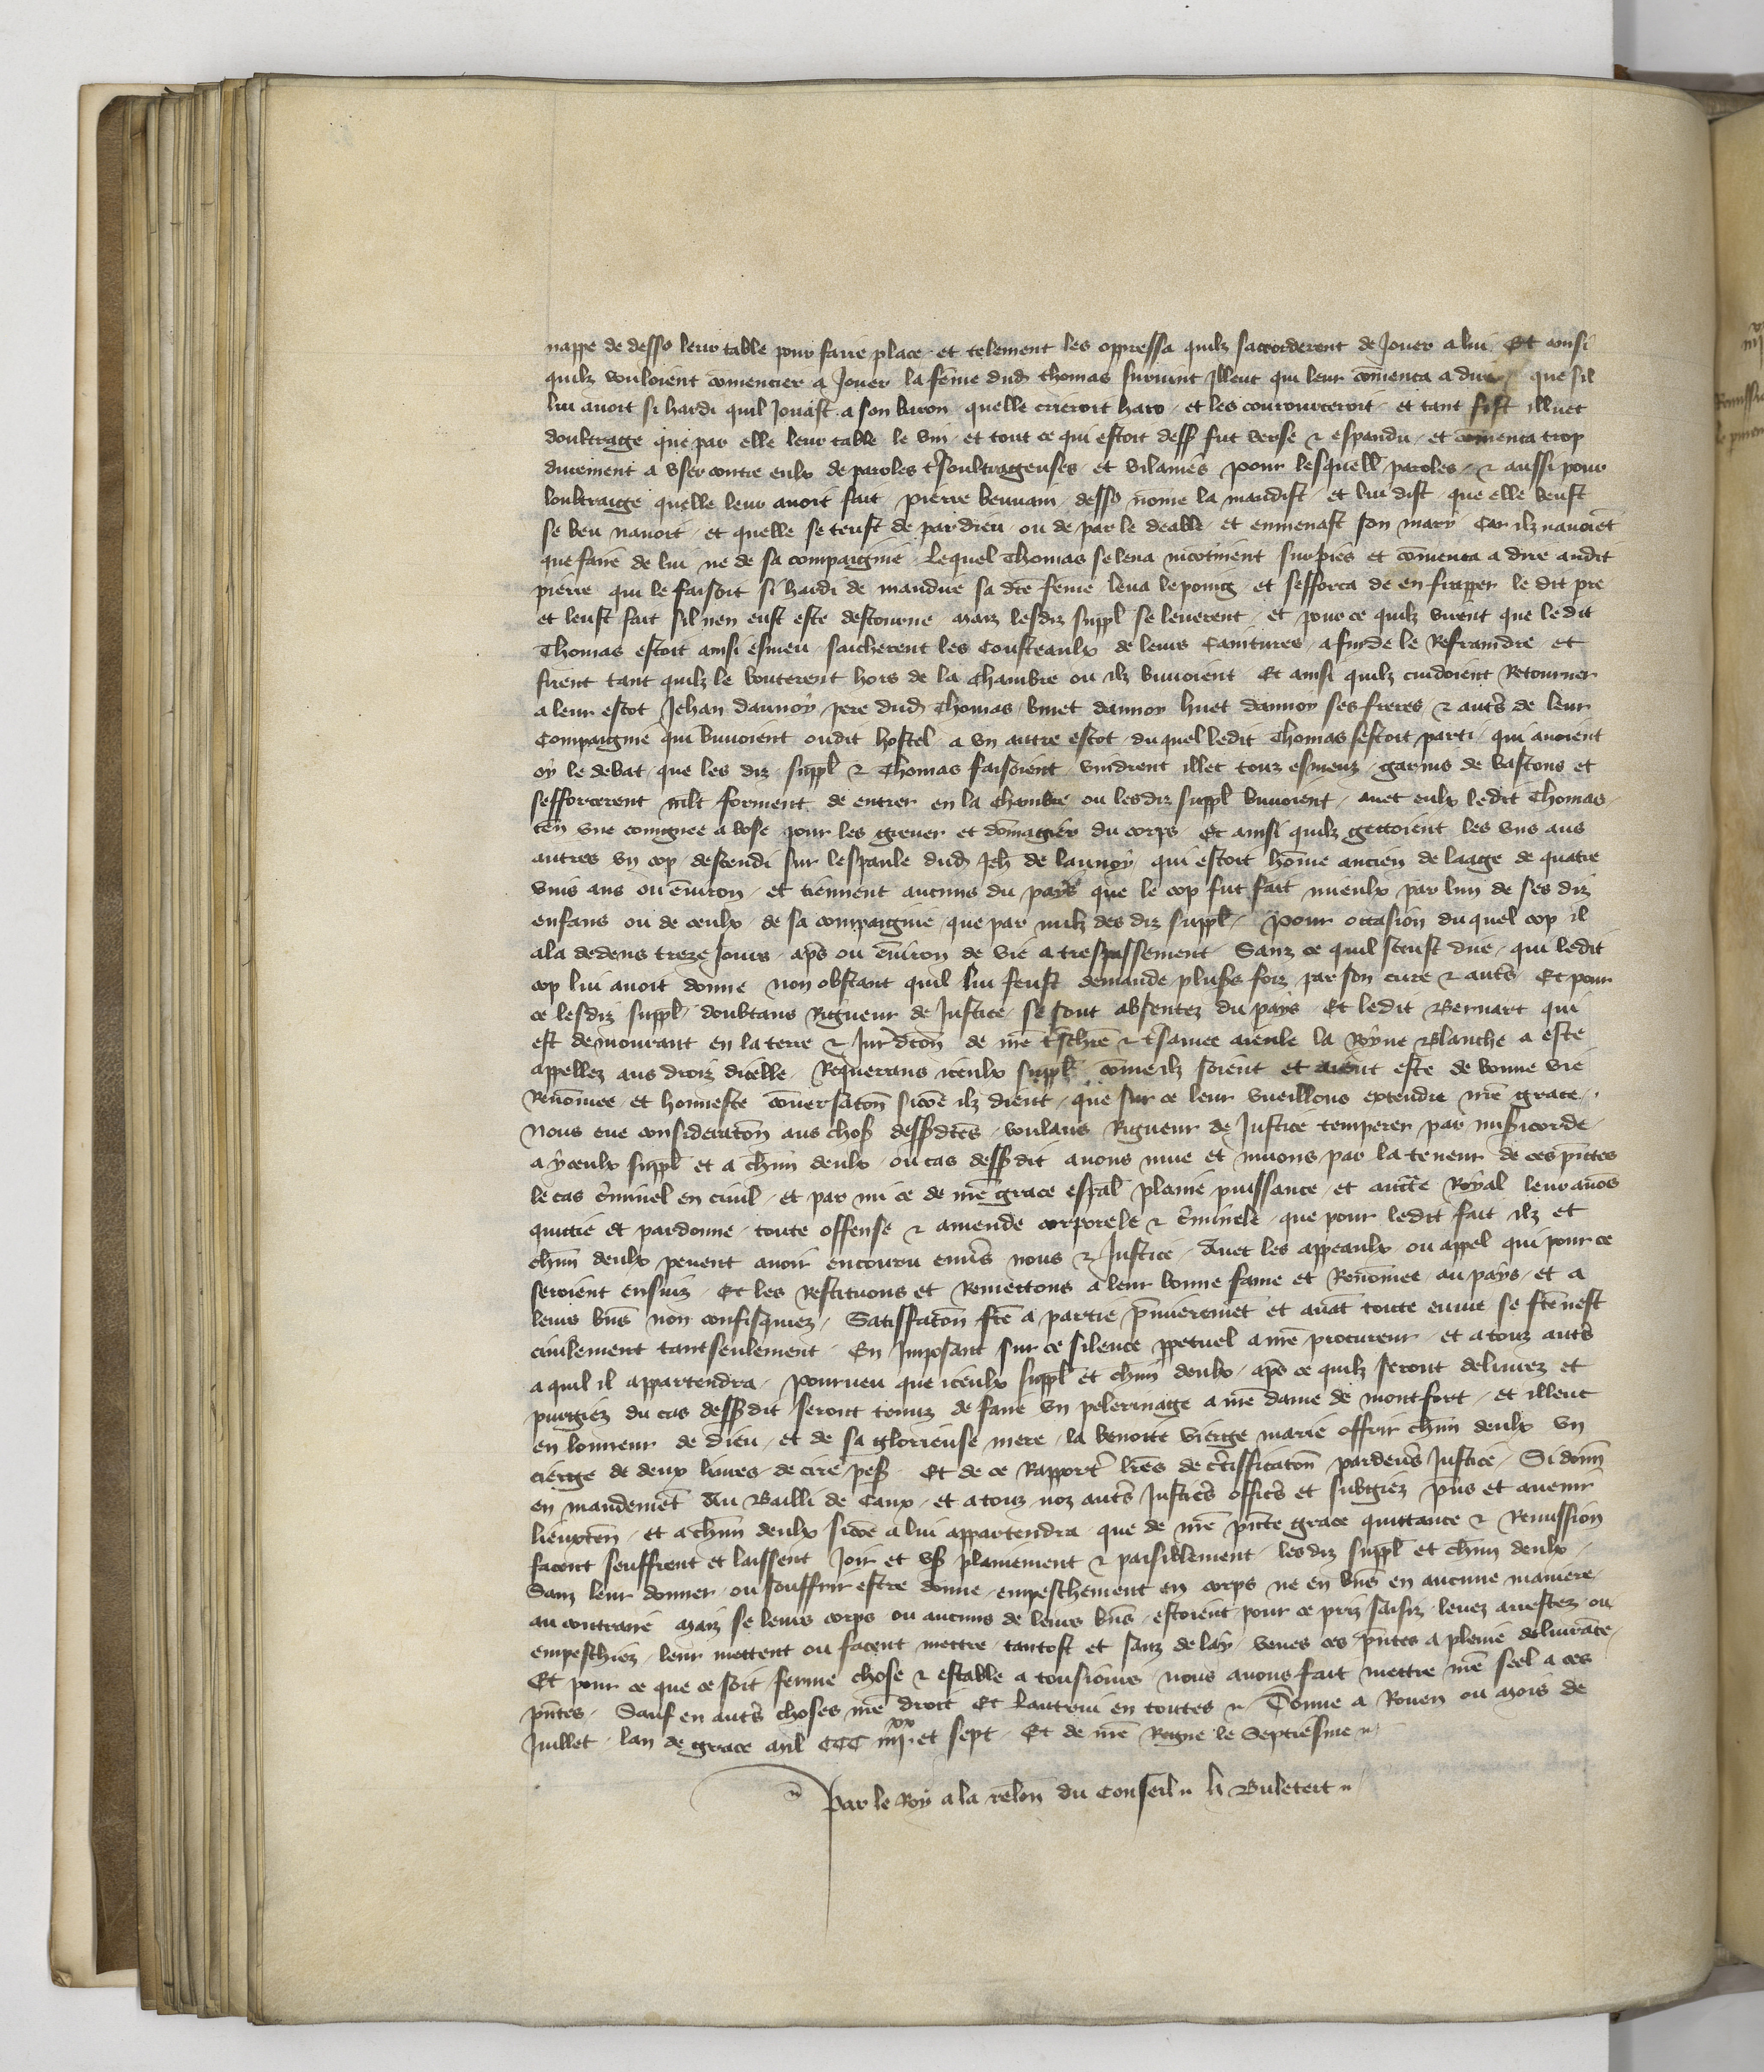 nappe de dessꝰ leur table pour faire place et telement les oppressa quilz sacorderent de Jouer a lui Et ainsi
quilz vouloient comencier a Jouer la feme dud thomas suruint Illeuc qui leur comenca a dire que sil
lui auoit si hardi quil Jouast a son baron quelle crieroit haro et les courourceroit et tant fist illuec
doultrage que par elle leur table le vin et tout ce qui estoit dess fut verse & espandu et comenca trop
durement a vser contre eulx de paroles tsoultrageuses et vilaines pour lesquell paroles & aussi pour
loultraige quelle leur auoit fait pierre beuuain dessꝰ nome la maudist et lui dist que elle beust
se beu nauoit et quelle se teust de par dieu ou de par le deable et enmenast son mary Car ilz nauoiet
que faire de lui ne de sa compaignie Lequel Thomas se leua incotinent sur pies et comenca a dire audit
pierre qui le faisoit si hardi de maudire sa dce feme leua le poing et sefforca de en frapper le dit pre
et leust fait sil nen eust este destourne maiz lesdiz suppl se leuerent et pour ce quilz virent que le dit
Thomas estoit ainsi esmeu saicherent les Cousteaulx de leurs Caintures afin de le Refraindre et
firent tant quilz le bouterent hors de la chambre ou ilz buuoient Et ainsi quilz cuidoient Retourner
a leur escot Jehan daunoy pere dud Thomas binet daunoy huet daunoy ses freres & auts de leur
Compaignie qui buuoient oudit hostel a vn autre escot du quel ledit Thomas sestoit parti qui auoient
oy le debat que les diz suppl & Thomas faisoient vindrent illec touz esmeuz garnis de bastons et
sefforcerent mlt forment de entrer en la chambre ou lesdiz suppl buuoient auec eulx ledit Thomas
ten vne coingnee a pour les greuer et domagier du corps Et ainsi quilz gettoient les vns aus
autres vn cop descendi sur lespaule dud Jeh de launoy qui estoit home ancien de laage de quatre
vins ans ou enuiron et tiennent aucuns du pays que le cop fut fait mieulx par lun de ses diz
enfans ou de ceulx de sa compaignie que par nulz des diz suppl Pour occasion du quel cop il
ala dedens treze Jours aps ou enuiron de vie a trespassement Sanz ce quil sceust dire qui ledit
cop lui auoit donne non obstant quil lui feust demande pluss foiz par son cure & auts Et pour
ce lesdiz suppl doubtans Rigueur de Justice se sont absentez du pays Et ledit Bernart qui
est demourant en la terre & Jurdcon de nre tschre & tsamee aieule la Royne Blanche a este
appellez aus droiz dicelle Requerans iceulx suppl come ilz soient et aient este de bonne vie
Renomee et honneste conuersaton sicoe ilz dient que sur ce leur vueillons extendre nre grace
Nous eue consideraton aus chos dessdces voulans Rigueur de Justice temperer par misicorde
a yceulx suppl et a chun deulx ou cas dessdit auons mue et muons par la teneur de ces pntes
le cas criminel en ciuil et par mi ce de nre grace espal plaine puissance et aucte Royal leur auos
quittie et pardonne toute offense & amende corporele & criminele que pour ledit fait ilz et
chun deulx peuent auoir encouru enuers nous & Justice Auec les appeaulx ou appel qui pour ce
seroient ensuiz Et les Restituons et Remettons a leur bonne fame et Renomee au pays et a
leurs bns non confisquiez Satisfaton fce a partie pmieremet et auat toute euure se fce nest
ciuilement tant seulement En Imposant sur ce silence ppetuel a nre procureur et a touz auts
a quil il appartendra Pourueu que iceulx suppl et chun deulx aps ce quilz seront deliurez et
purgiez du cas dessdit seront tenuz de faire vn pelerinage a nre dame de montfort et illeuc
en lonneur de dieu et de sa glorieuse mere la benoite vierge marie offrir chun deulx vn
cierge de deux liures de cire pes Et de ce Rapport lres de certifficaton pardeuers Justice Si donn
en mandemet Au Bailli de Caux et a touz noz auts Justics offics et subgiez pns et auenir
lieuxten et a chun deulx sicoe a lui appartendra que de nre pnte grace quittance & Remission
facent seuffrent et laissent Joir et vs plainement & paisiblement lesdiz suppl et chun deulx
Sanz leur donner ou souffrir estre donne empeschement en corps ne en bns en aucune maniere
au contraire Maiz se leurs corps ou aucuns de leurs bns estoient pour ce priz saisiz leuez arrestez ou
empeschiez leur mettent ou facent mettre tantost et sanz delay veues ces pntes a pleine deliurace
Et pour ce que ce soit ferme chose & estable a tousiours nous auons fait mettre nre seel a ces
pntes Sauf en auts choses nre droit Et lautrui en toutes Donne a Rouen ou Mois de
Juillet lan de grace Mil CCC iiijxx et sept Et de nre Regne le Septiesme
Par le Roy a la relon du Conseil h Buleteit